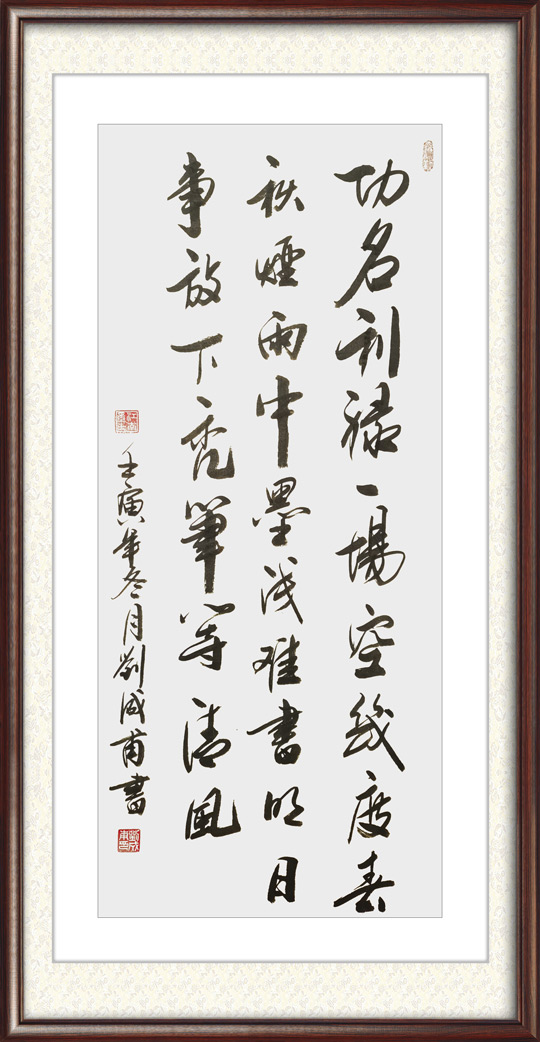 功名利祿一場空幾度春
秋煙雨中墨淺难書明日
事放下禿筆等清風
壬寅年冬月劉成甫書